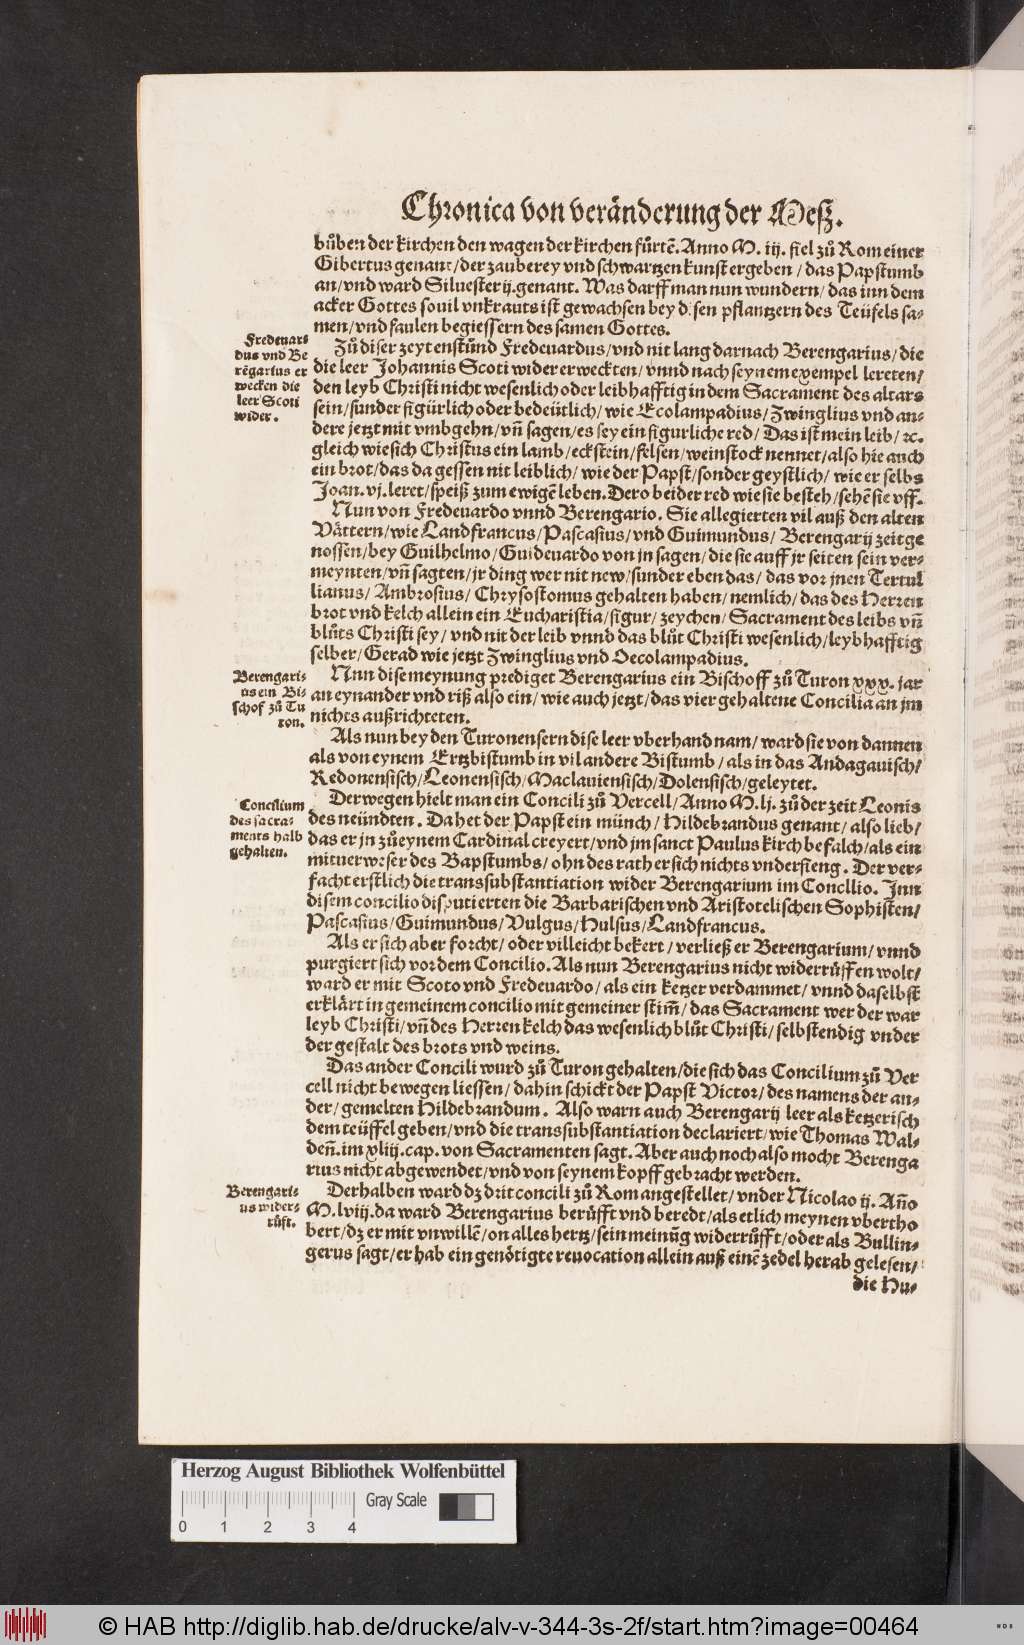 Chronica von veränderung der Meß.
bůben der kirchen den wagen der kirchen fůrtẽ. Anno M. iij. fiel zů Rom einer
Gibertus genant/ der zauberey vnd schwartzen kunst ergeben/ das Papstumb
an/ vnd ward Siluester ij. genant. Was darff man nun wundern/ das inn dem
acker Gottes souil vnkrauts ist gewachsen bey disen pflantzern des Teüfels sa-
men/ vnd faulen begiessern des samen Gottes.
Fredeuar-
dus vnd Be
rẽgarius er
wecken die
leer Scoti
wider.
Zů diser zeyt enstůnd Fredeuardus/ vnd nit lang darnach Berengarius/ die
die leer Johannis Scoti wider erweckten/ vnnd nach seynem exempel lereten/
den leyb Christi nicht wesenlich oder leibhafftig in dem Sacrament des altars
sein/ sunder figürlich oder bedeütlich/ wie Ecolampadius/ Zwinglius vnd an-
dere jetzt mit vmbgehn/ vñ sagen/ es sey ein figurliche red/ Das ist mein leib/ ꝛc.
gleich wie sich Christus ein lamb/ eckstein/ felsen/ weinstock nennet/ also hie auch
ein brot/ das da gessen nit leiblich/ wie der Papst/ sonder geystlich/ wie er selbs
Joan. vj. leret/ speiß zum ewigẽ leben. Dero beider red wie sie besteh/ sehẽ sie vff.
Nun von Fredeuardo vnnd Berengario. Sie allegierten vil auß den alten
Vättern/ wie Landfrancus/ Pascasius/ vnd Guimundus/ Berengarij zeitge
nossen/ bey Guilhelmo/ Guideuardo von jn sagen/ die sie auff jr seiten sein ver-
meynten/ vñ sagten/ jr ding wer nit new/ sunder eben das/ das vor jnen Tertul
lianus/ Ambrosius/ Chrysostomus gehalten haben/ nemlich/ das des Herren
brot vnd kelch allein ein Eucharistia/ figur/ zeychen/ Sacrament des leibs vñ
blůts Christi sey/ vnd nit der leib vnnd das blůt Christi wesenlich/ leybhafftig
selber/ Gerad wie jetzt Zwinglius vnd Oecolampadius.
Berengari-
us ein Bi-
schof zů Tu
ron.
Nun dise meynung prediget Berengarius ein Bischoff zů Turon xxx. jar
an eynander vnd riß also ein/ wie auch jetzt/ das vier gehaltene Concilia an jm
nichts außrichteten.
Als nun bey den Turonensern dise leer vberhand nam/ ward sie von dannen
als von eynem Ertzbistumb in vil andere Bistumb/ als in das Andagauisch/
Redonensisch/ Leonensisch/ Maclauiensisch/ Dolensisch/ geleytet.
Concilium
des sacra-
ments halb
gehalten.
Derwegen hielt man ein Concili zů Vercell/ Anno M. lj. zů der zeit Leonis
des neündten. Da het der Papst ein münch/ Hildebrandus genant/ also lieb/
das er jn zů eynem Cardinal creyert/ vnd jm sanct Paulus kirch befalch/ als ein
mituerweser des Bapstumbs/ ohn des rath er sich nichts vnderfieng. Der ver-
facht erstlich die transsubstantiation wider Berengarium im Concilio. Jnn
disem concilio disputierten die Barbarischen vnd Aristotelischen Sophisten/
Pascasius/ Guimundus/ Vulgus/ Hulsus/ Landfrancus.
Als er sich aber forcht/ oder villeicht bekert/ verließ er Berengarium/ vnnd
purgiert sich vor dem Concilio. Als nun Berengarius nicht widerrůffen wolt/
ward er mit Scoto vnd Fredeuardo/ als ein ketzer verdammet/ vnnd daselbst
erklärt in gemeinem concilio mit gemeiner stim̃/ das Sacrament wer der war
leyb Christi/ vñ des Herren kelch das wesenlich blůt Christi/ selbstendig vnder
der gestalt des brots vnd weins.
Das ander Concili wurd zů Turon gehalten/ die sich das Concilium zů Ver
cell nicht bewegen liessen/ dahin schickt der Papst Victor/ des namens der an-
der/ gemelten Hildebrandum. Also warn auch Berengarij leer als ketzerisch
dem teüffel geben/ vnd die transsubstantiation declariert/ wie Thomas Wal-
deñ. im xliij. cap. von Sacramenten sagt. Aber auch noch also mocht Berenga
rius nicht abgewendet/ vnd von seynem kopff gebracht werden.
Berengari-
us wider-
růft.
Derhalben ward dz drit concili zů Rom angestellet/ vnder Nicolao ij. Año
M. lviij. da ward Berengarius berůfft vnd beredt/ als etlich meynen vbertho
bert/ dz er mit vnwillẽ/ on alles hertz/ sein meinũg widerrůfft/ oder als Bullin-
gerus sagt/ er hab ein genötigte reuocation allein auß einẽ zedel herab gelesen/
die Hu-
Herzog August Bibliothek Wolfenbüttel
Gray Scale
0 1 2 3 4
© HAB http://diglib.hab.de/drucke/alv-v-344-3s-2f/start.htm?image=00464